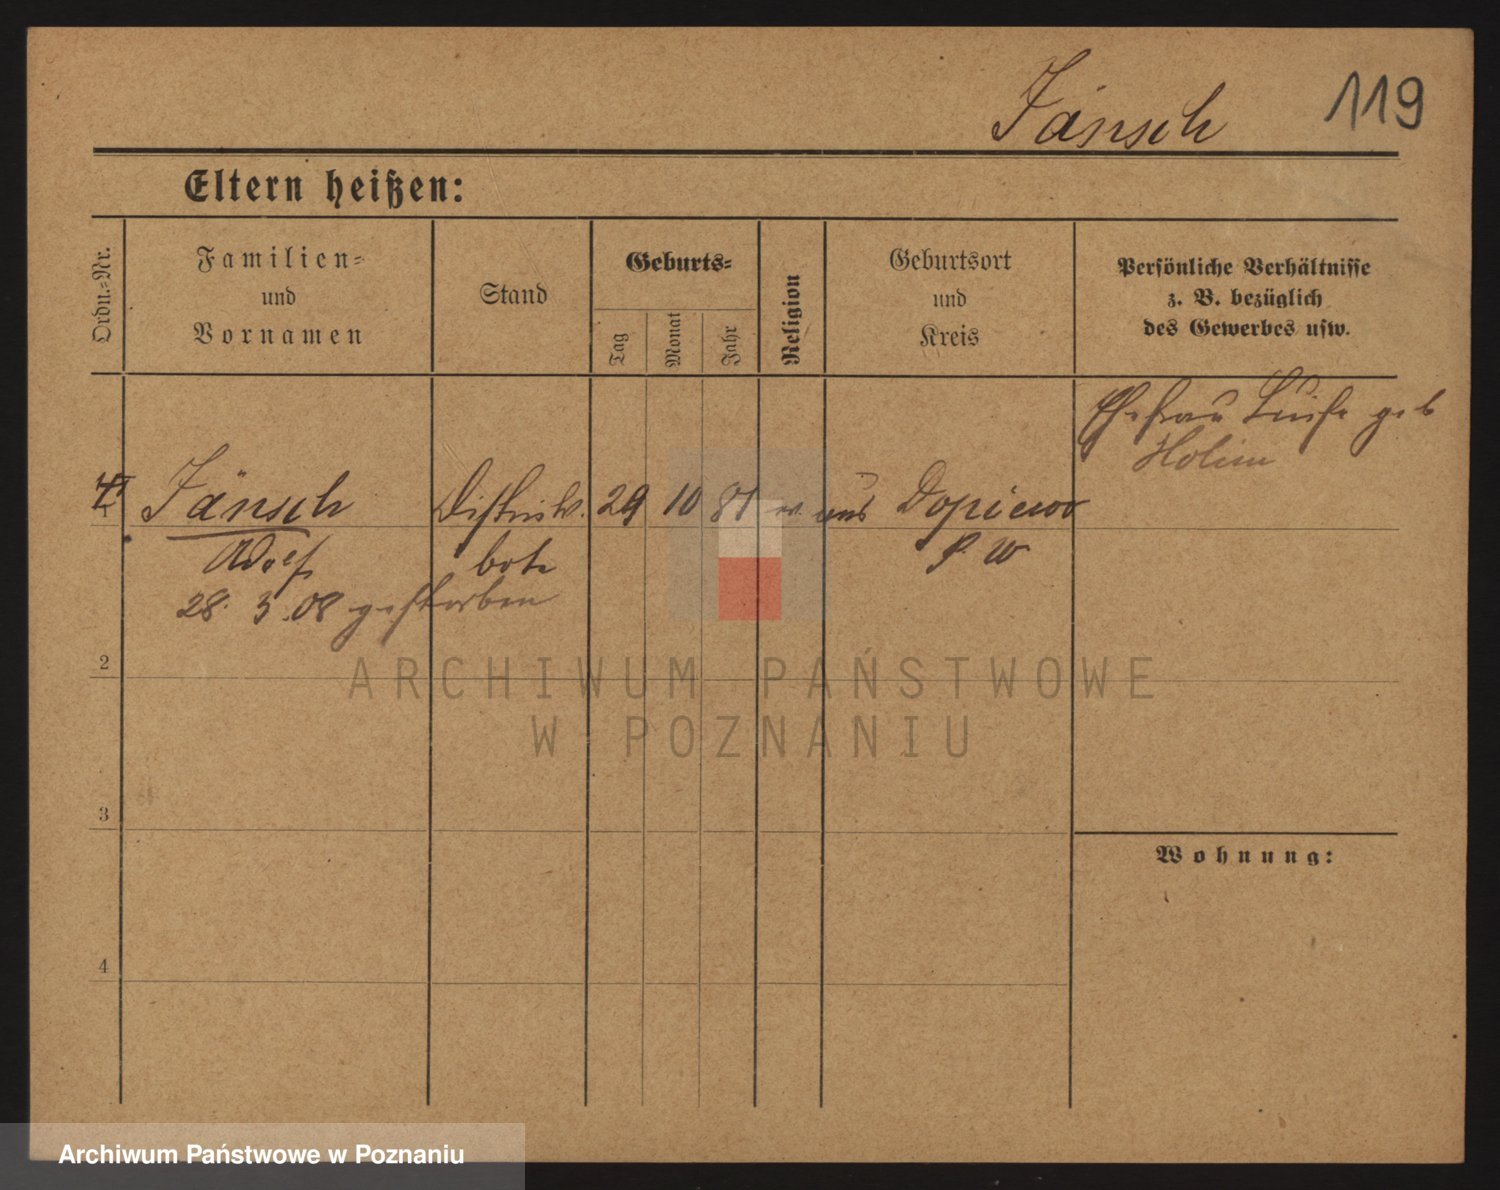 Jänsch 119
Eltern heißen:
Ordn.-Nr.
Familien-
und
Vornamen
Stand
Geburts-
Tag
Monat
Jahr
Religion
Geburtsort
und
Kreis
Persönliche Verhältnisse
z. B. bezüglich
des Gewerbes usw.
Ehefrau Luise geb
Jänsch Distrikts. 29 10 81 aus Dopiewo
Adolf bote P. W
28. 3. 08 gestorben
2
3
4
Wohnung:
ARCHIWUM PAŃSTWOWE
W POZNANIU
Archiwum Państwowe w Poznaniu